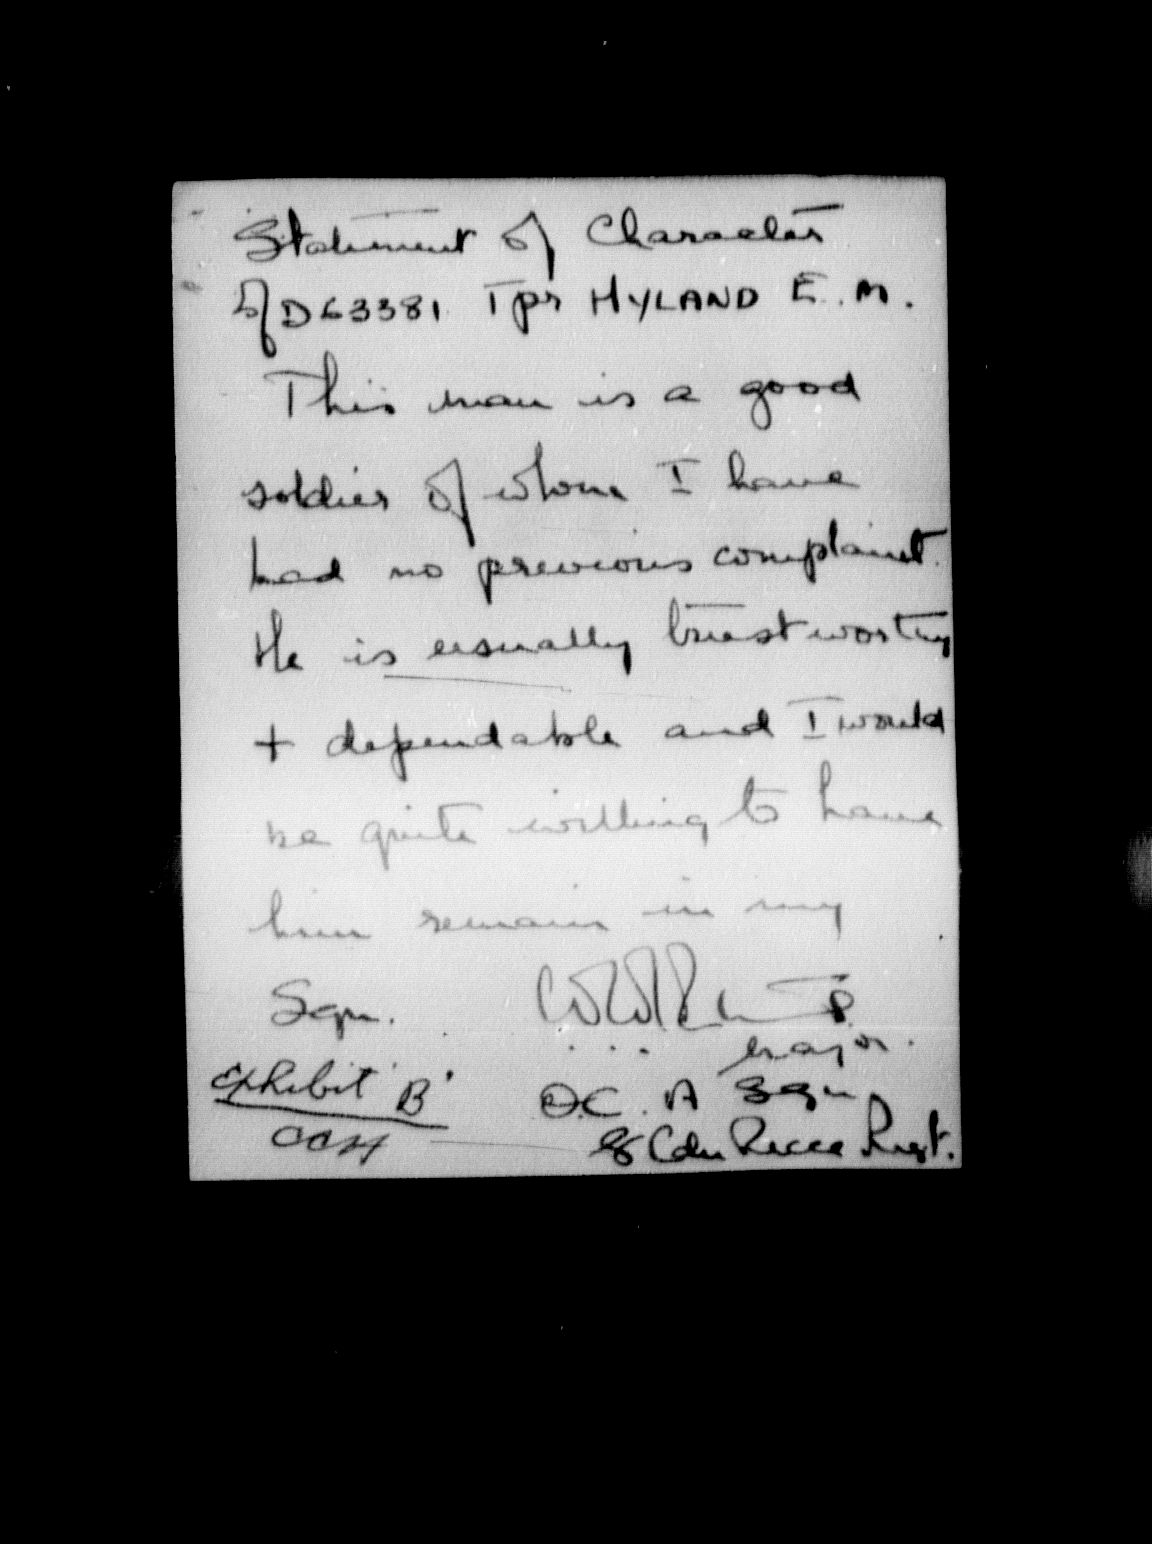 Statement of Character
of D63381 Tpr HYLAND E. M.
This man is a good
soldier of whom I have
had no previous complaint.
He is usually trustworthy
+ dependable and I would
be quite willing to have
him remain in my
Sqn.
Major.
Exhibit 'B'
O.C. A Sqn
8 Cdn Recce Regt.